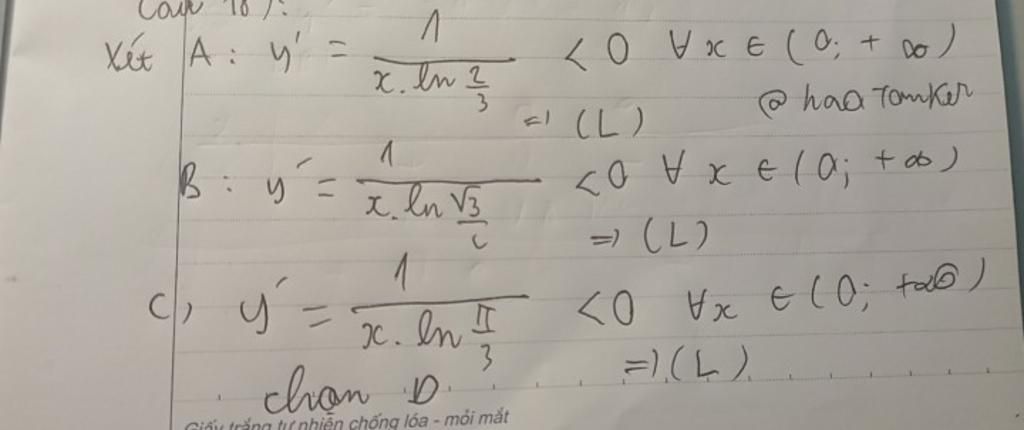 Câu 18):
Xét A: y' = 1 / (x. ln 2/3) < 0 ∀ x ∈ (0; + ∞)
=) (L) @ haotomker
B: y' = 1 / (x. ln √3/c) < 0 ∀ x ∈ (0; +∞)
=) (L)
C) y' = 1 / (x. ln π/3) < 0 ∀x ∈ (0; +∞)
=) (L)
chọn D
Giấy trắng tự nhiên chống lóa - mỏi mắt